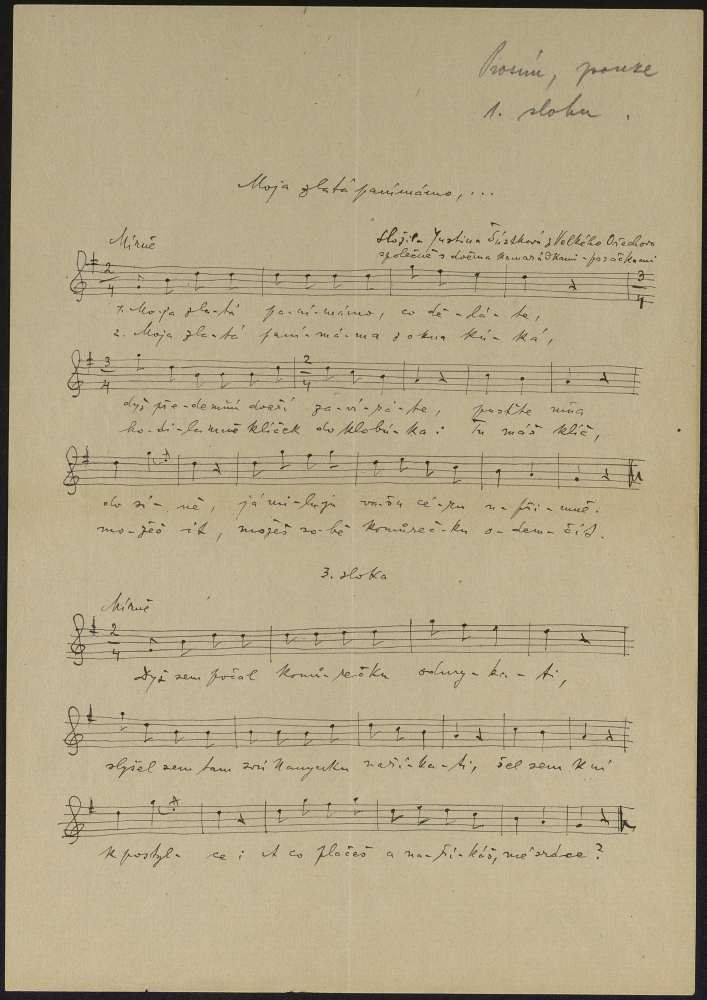 Prosím, pouze
1. slohu.
Moja zlatá panímámo, ...
Mírně
Složila Justina Šůstková z Velkého Ořechova
společně s dvěma kamarádkami-pasáčkami
2/4 3/4
1. Mo-ja zla-tá pa-ní-mámo, co dě-lá-te,
2. Moja zla-tá paní-má-ma z okna ků-ká,
3/4 2/4
dyž pře-demňú dveří za-ví-rá-te, pustite mňa
ho-di-la mně klíček do klobú-ka: Tu máš klíč,
do sí-ně, já mi-luju vašu cé-rku u-příi-mně.
mo-žéš ít, možéš so-bě komůreč-ku o-dem-čít.
3. sloka
Mírně
2/4
Dyž sem počal komů-rečku odmy-ka-ti,
slyšel sem tam svú Hanyčku naří-ka-ti, šel sem k ní
k postýl-ce: co plačeš a na-ří-káš, mé srdce?